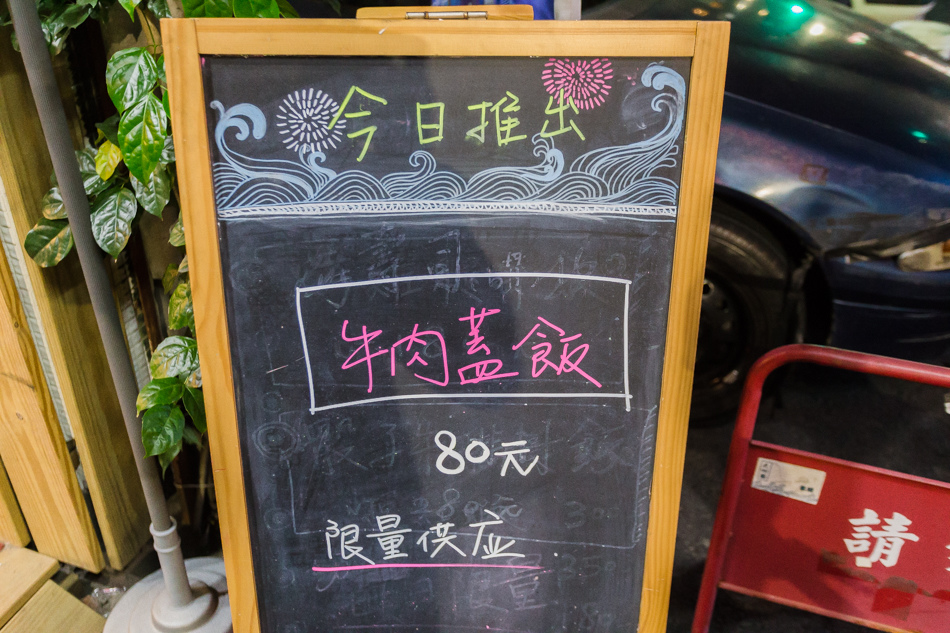 今日推出
牛肉蓋飯
80元
限量供应.
請